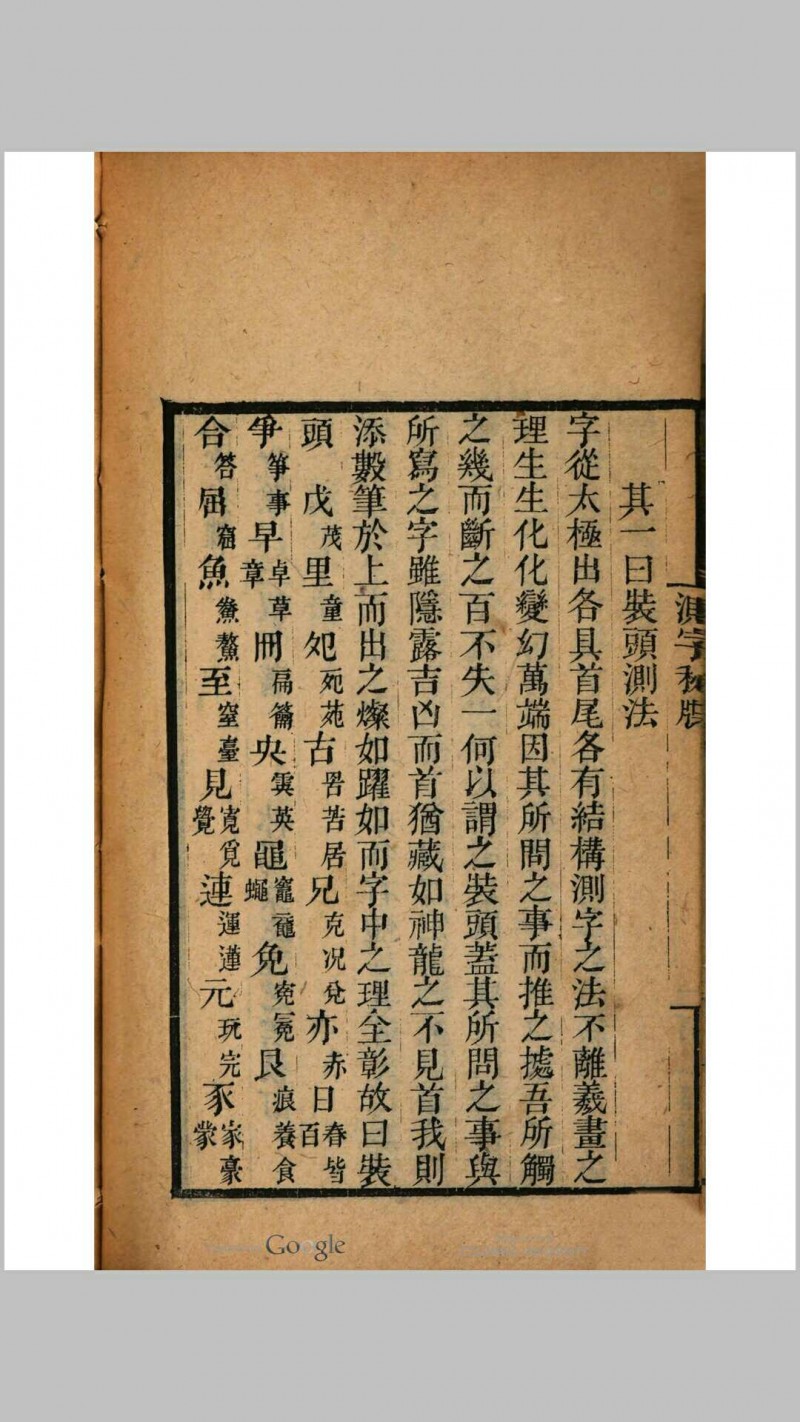 測字秘牒
其一曰裝頭測法
字從太極出各具首尾各有結構測字之法不離羲畫之
理生生化化變幻萬端因其所問之事而推之據吾所觸
之幾而斷之百不失一何以謂之裝頭蓋其所問之事與
所寫之字雖隱露吉凶而首猶藏如神龍之不見首我則
添數筆於上而出之燦如躍如而字中之理全彰故曰裝
頭 戊茂 里童 夗宛苑 古罟苦居 兄克况兌 亦赤 日春皆百
爭箏事 早卓草章 冊扁籥 央霙英 黽竈鼀蠅 免寃冕 艮痕養食
合答 屈窟 魚鮝鰲 至窒臺 見寬覓覺 連運蓮 元玩完 豕家豪蒙
Google